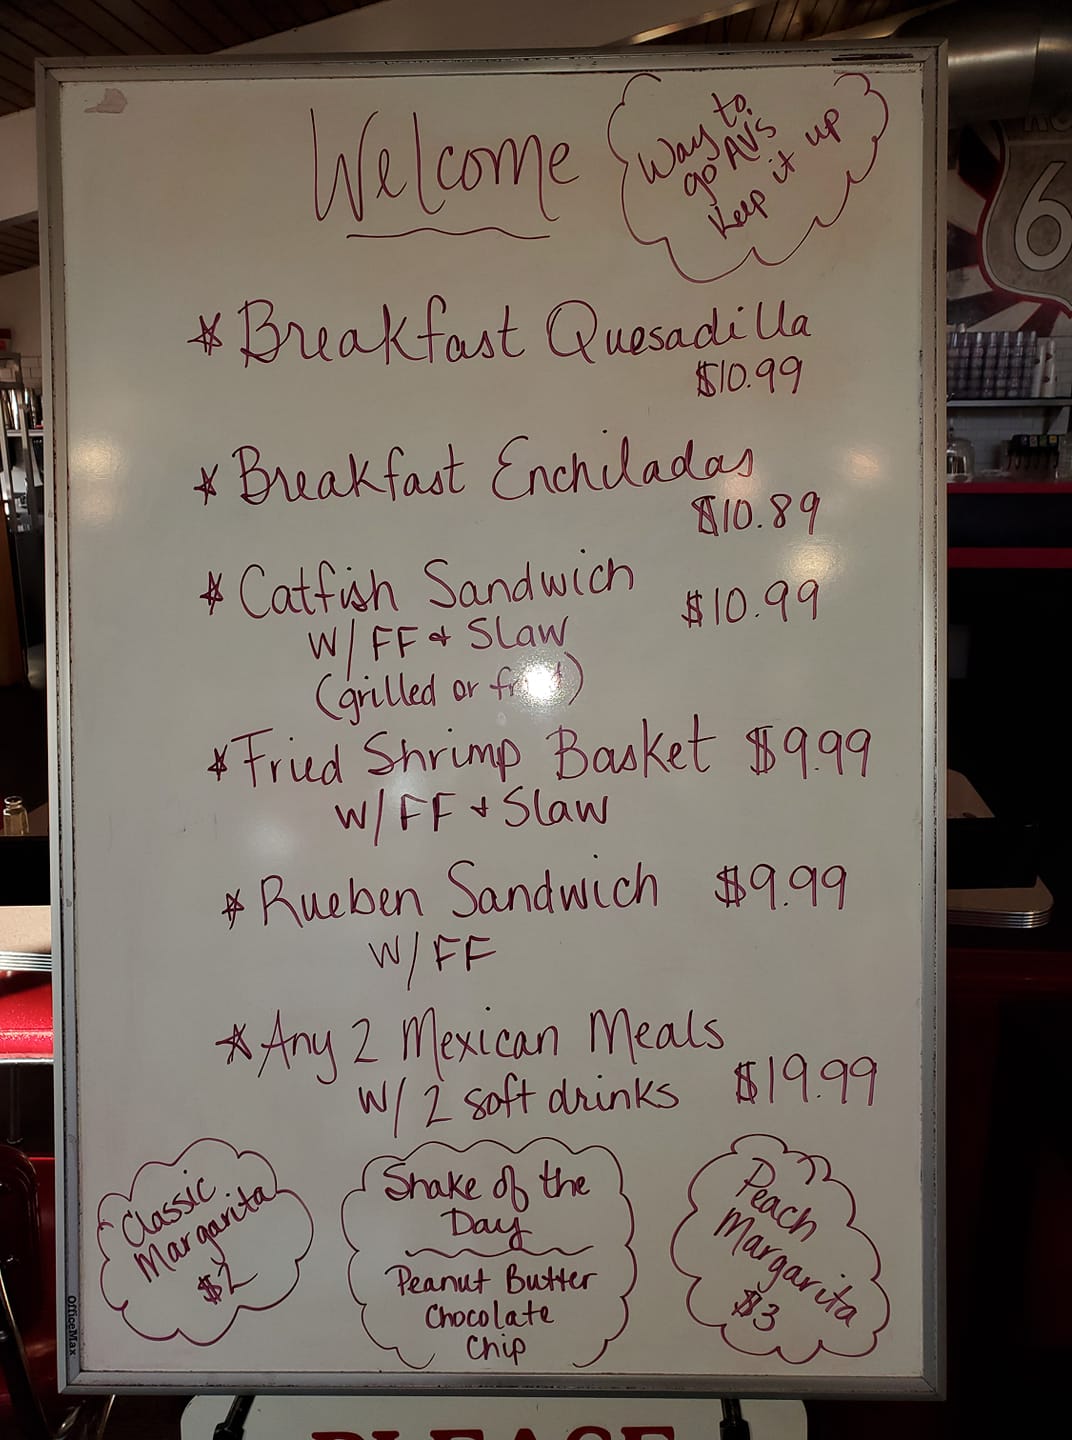 Welcome
Way to
go AVS
Keep it up
Breakfast Quesadilla
$10.99
Breakfast Enchiladas
$10.89
Catfish Sandwich $10.99
W/ FF & Slaw
(grilled or fried)
Fried Shrimp Basket $9.99
W/ FF & Slaw
Rueben Sandwich $9.99
W/ FF
Any 2 Mexican Meals
W/ 2 soft drinks $19.99
Classic
Margarita
$2
Shake of the
Day
Peanut Butter
Chocolate
Chip
Peach
Margarita
$3
OfficeMax
6
PLEASE